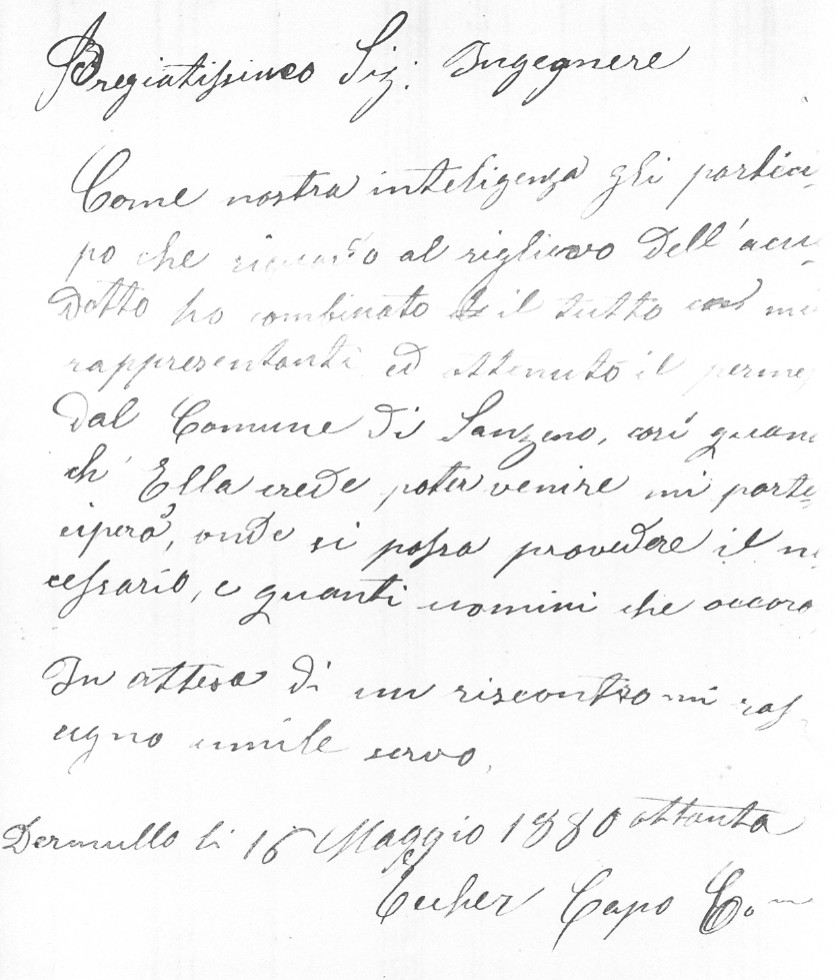 Pregiatissimo Sig. Ingegnere
Come nostra inteligenza gli partici
po che riguardo al riglievo dell'acu
dotto ho combinato il tutto coi mi
rappresentanti ed ottenuto il perme
dal Comune di Sanzeno, così quan
ch' Ella crede poter venire mi parte
ciperà, onde si possa provedere il ne
cessario, e quanti uomini che occoro
In attesa di un riscontro mi ras
segno umile servo.
Dermullo li 16 Maggio 1880 ottanta
Echer Capo Co